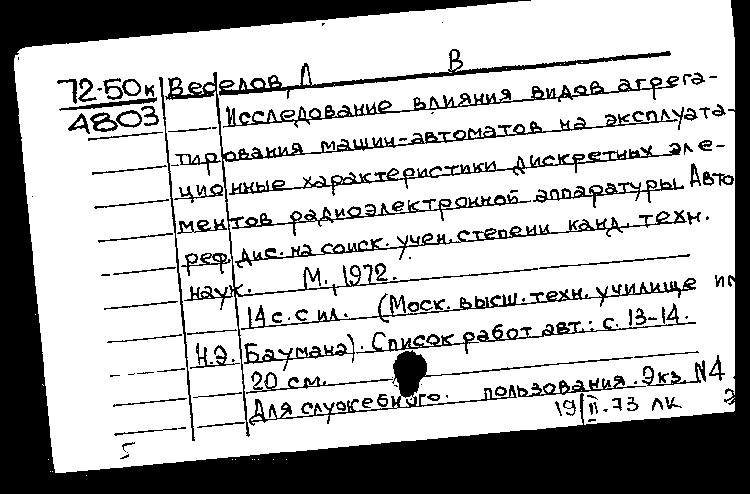 72-50к Веселов, Л В
4803 Исследование влияния видов агрега-
тирования машин-автоматов на эксплуата-
ционные характеристики дискретных эле-
ментов радиоэлектронной аппаратуры. Авто
реф. дис. на соиск. учен. степени канд. техн.
наук. М., 1972.
14 с. с ил. (Моск. высш. техн. училище им
Н.Э. Баумана). Список работ авт.: с. 13-14.
20 см.
Для служебного пользования. Экз. N4
19/II-73 ЛК